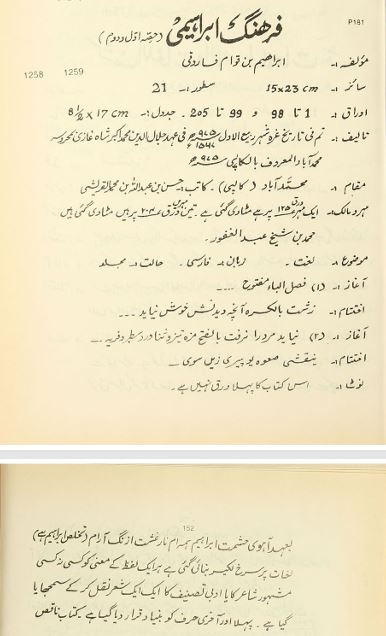 P181
فرہنگ ابراہیمی (حصہ اول و دوم)
1258 1259
مؤلف :- ابراہیم بن قوام فاروقی
سائز :- 15x23 cm سطور :- 21
اوراق :- 1 تا 98 و 99 تا 205 - جدول :- 8½ x 17 cm
تالیف :- تم فی تاریخ غرہ شہر ربیع الاول ۹۷۵ھ فی عہد جلال الدین محمد اکبر شاہ غازی
محمد آباد المعروف بالکالپی ۹۷۵ھ
مقام :- محمد آباد (کالپی) - کاتب :- حسن بن عبداللہ بن محمد القریشی
مہر و مالک :- ایک مہر ورق ۱۲۵ پر ہے مٹا دی گئی ہے - تین مہریں ورق ۲۰۴ پر ہیں، مٹا دی گئی ہیں
محمد بن شیخ عبد الغفور -
موضوع :- لغت - زبان :- فارسی - حالت :- مجلد
آغاز :- (۱) فصل الباء مفتوح ....
اختتام :- زشت بالکسرہ آنچہ دیدنش خوش نیاید ...
آغاز :- (۲) نیاید مرد را نرفت بالفتح مزہ نیز و ثنا در و سطر و فربہ ...
اختتام :- صعوہ بو پیری زیں سوی ...
نوٹ :- اس کتاب کا پہلا ورق نہیں ہے -
152
بعہد آہوی حشمت ابراہیم بہرام نار گشت از رنگ آرام (تخلص ابراہیم ہے)
لغات پر سرخ لکیر بنائی گئی ہے ہر ایک لفظ کے معنی کو کسی نہ کسی
مشہور شاعر کا یا ادبی تصنیف کا ایک ایک شعر نقل کر کے سمجھایا
گیا ہے - پہلا اور آخری حرف کو بنیاد قرار دیا گیا ہے یہ کتاب ناقص